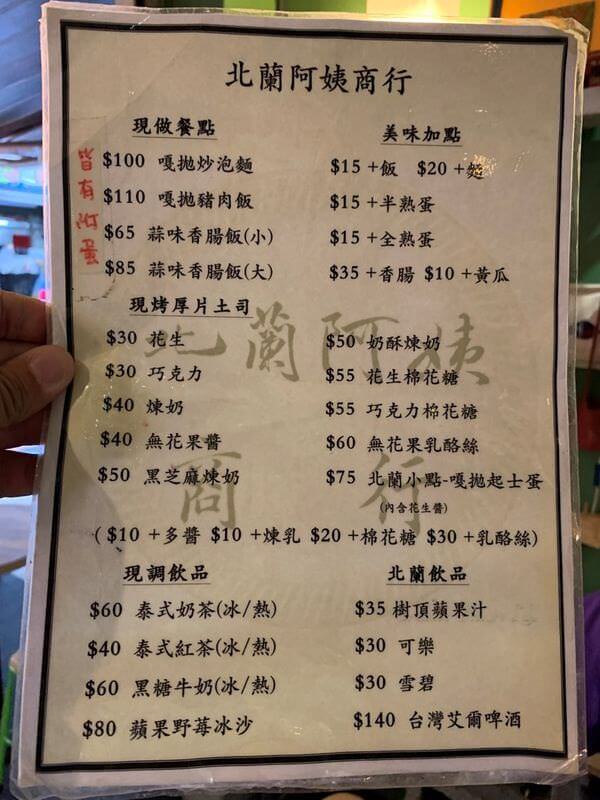 北蘭阿姨商行
現做餐點
皆有附蛋
$100 嘎拋炒泡麵
$110 嘎拋豬肉飯
$65 蒜味香腸飯(小)
$85 蒜味香腸飯(大)
美味加點
$15 +飯 $20 +麵
$15 +半熟蛋
$15 +全熟蛋
$35 +香腸 $10 +黃瓜
現烤厚片土司
$30 花生
$30 巧克力
$40 煉奶
$40 無花果醬
$50 黑芝麻煉奶
$50 奶酥煉奶
$55 花生棉花糖
$55 巧克力棉花糖
$60 無花果乳酪絲
$75 北蘭小點-嘎拋起士蛋
(內含花生醬)
( $10 +多醬 $10 +煉乳 $20 +棉花糖 $30 +乳酪絲)
現調飲品
$60 泰式奶茶(冰/熱)
$40 泰式紅茶(冰/熱)
$60 黑糖牛奶(冰/熱)
$80 蘋果野莓冰沙
北蘭飲品
$35 樹頂蘋果汁
$30 可樂
$30 雪碧
$140 台灣艾爾啤酒
北蘭阿姨
商行